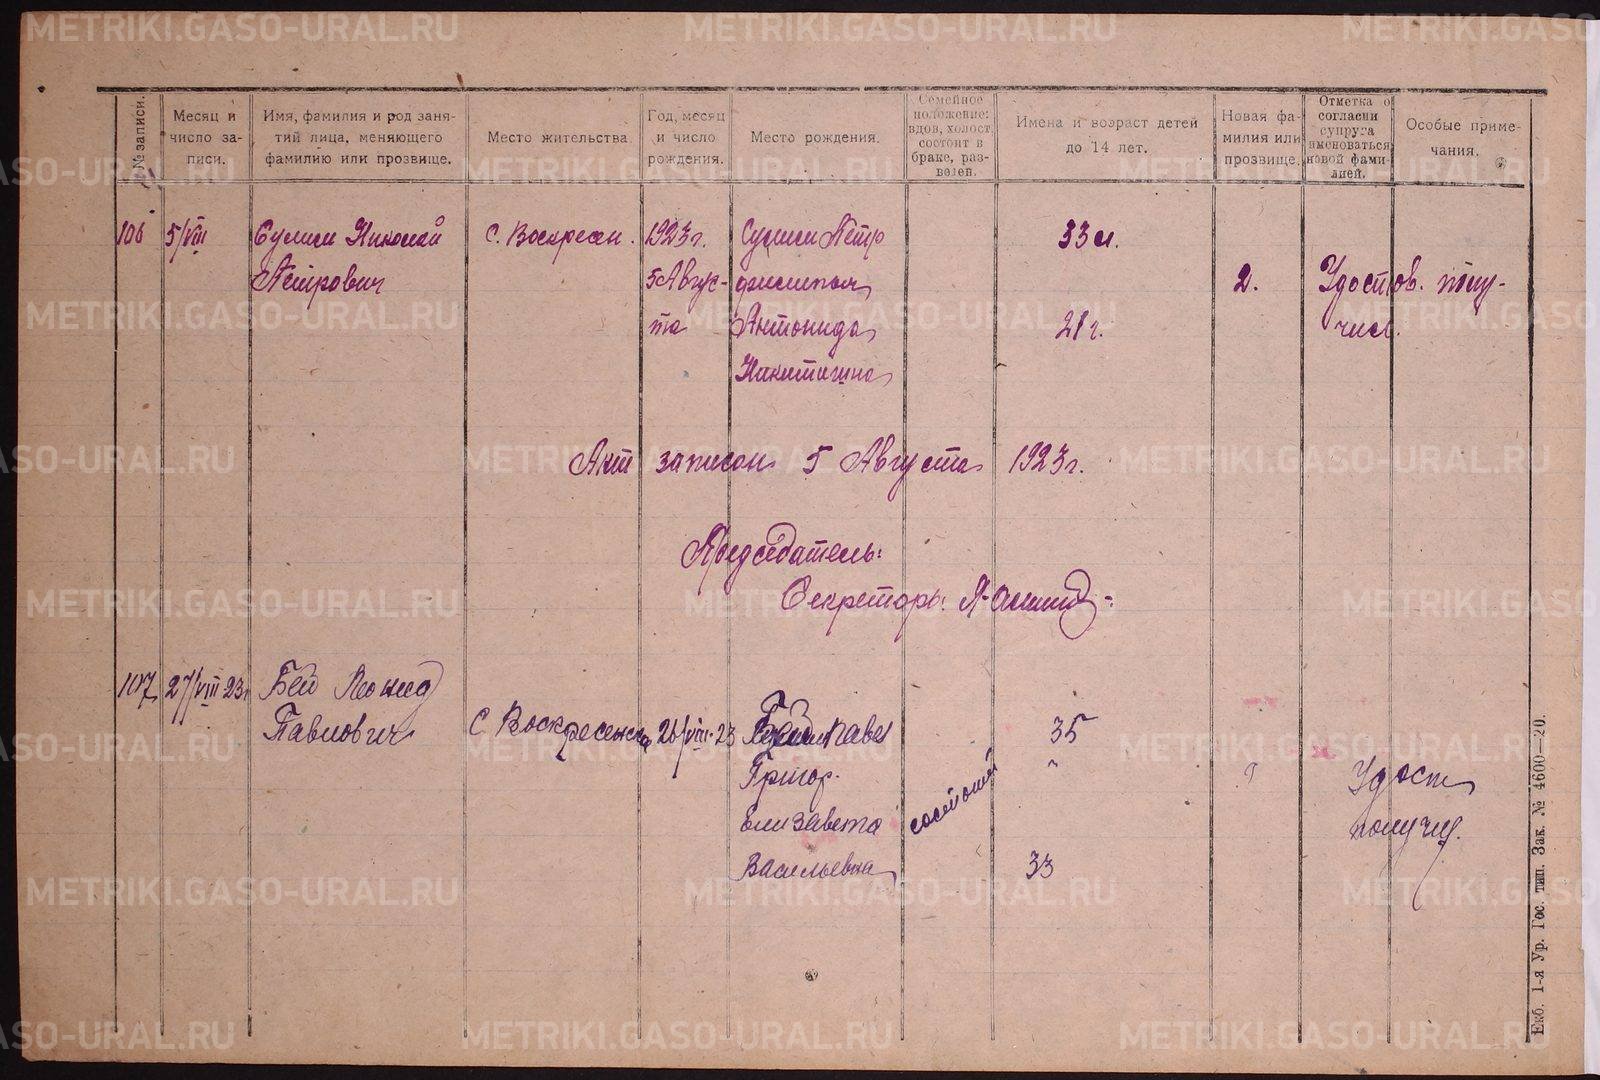 METRIKI.GASO-URAL.RU
№ записи.
Месяц и число записи.
Имя, фамилия и род занятий лица, меняющего фамилию или прозвище.
Место жительства.
Год, месяц и число рождения.
Место рождения.
Семейное положение: вдов, холост, состоит в браке, разведен.
Имена и возраст детей до 14 лет.
Новая фамилия или прозвище.
Отметка о согласии супруга именоваться новой фамилией.
Особые примечания.
106 5/VIII Николай с. Воскресен. 1923 г. Петр 33 л.
Петрович 5 Авгус- 2. Удостов. полу-
та Антонида 21 г. чил.
Никитишна
Акт записан 5 Августа 1923 г.
Председатель:
Секретарь:
107 27/VIII 23 г Бей Леонид
Павлович С Воскресенск 26/VIII 23 Бей Павел 35
Григор. Удост
Елизавета получил.
Васильевна 33
Екб. 1-я Ур. Гос. тип. Зак. № 4600—20.